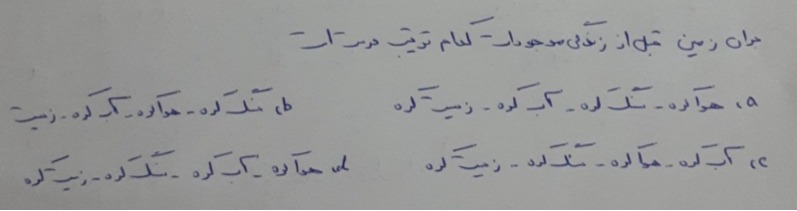 جوان زمین قبل از زندگی موجودات کدام ترتیب درست است
a, هواکره - سنگ کره - آب کره - زیست کره b, سنگ کره - هواکره - آب کره - زیست
c, آب کره - هواکره - سنگ کره - زیست کره d, هواکره - آب کره - سنگ کره - زیست کره